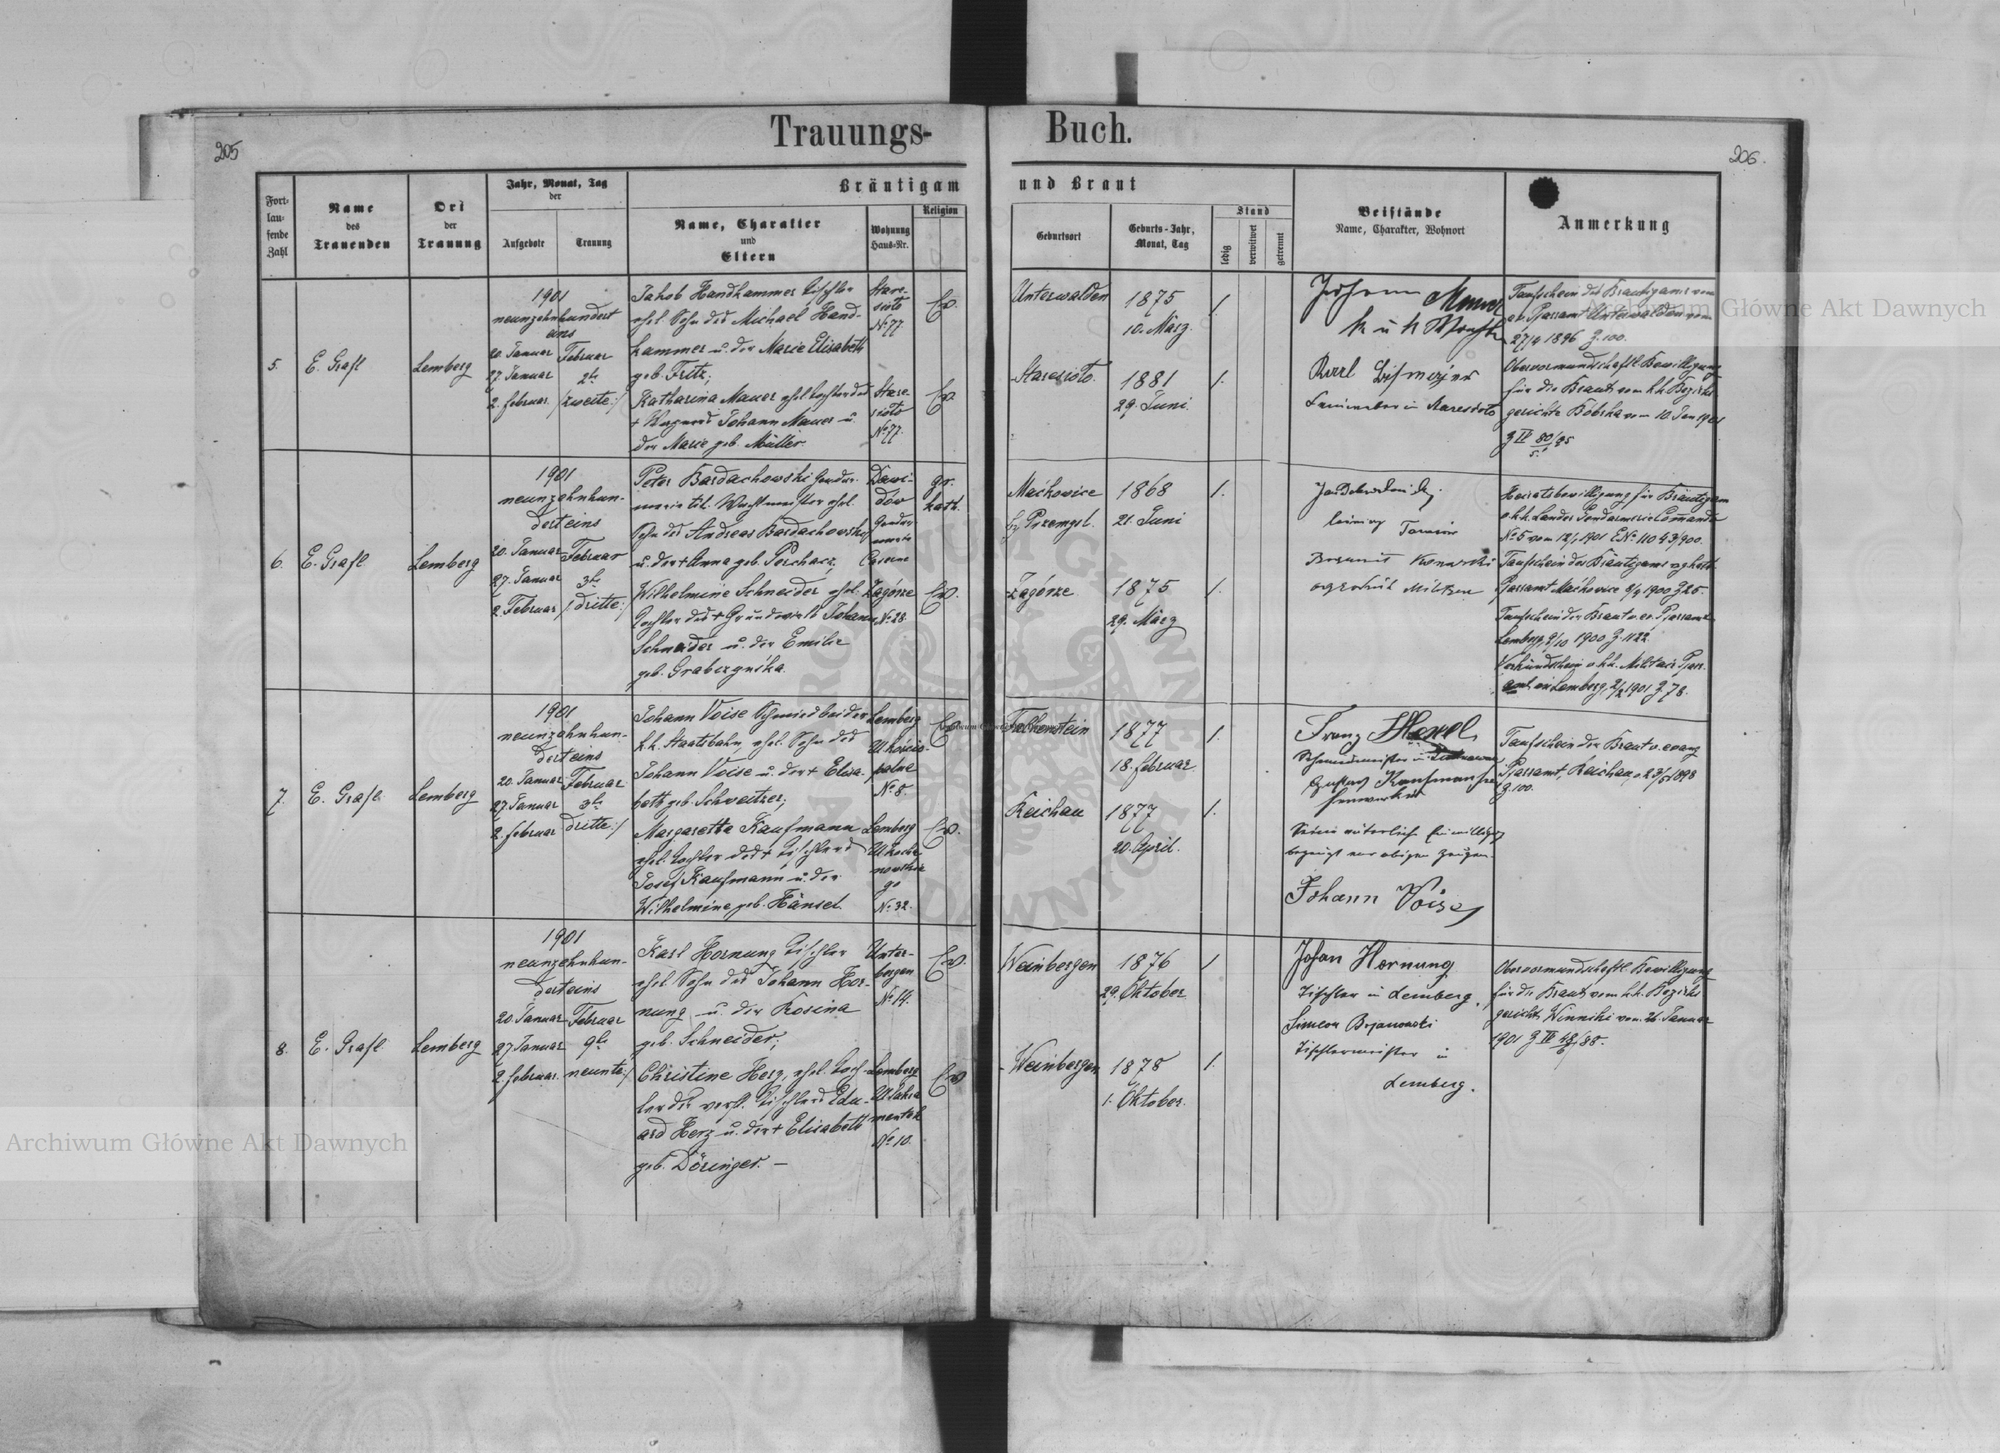 Trauungs-
Buch.
205
206.
Fort-
lau-
fende
Zahl
Name
des
Trauenden
Ort
der
Trauung
Jahr, Monat, Tag
der
Aufgebote
Trauung
Bräutigam
und Braut
Name, Charakter
und
Eltern
Wohnung
Haus-Nr.
Religion
Geburtsort
Geburts-Jahr,
Monat, Tag
Stand
ledig
verwitwet
getrennt
Beistände
Name, Charakter, Wohnort
Anmerkung
5.
E. Grafl
Lemberg
1901
neunzehnhundert
eins
20. Januar
27. Januar
2. Februar
Februar
2te
/zweite:/
Jakob Handkammer Tischler
ehel. Sohn des Michael Hand-
kammer u. der Marie Elisabeth
geb. Fritz;
Katharina Mauer ehel. Tochter des
+ Johann Mauer u.
der Marie geb. Müller.
Stare-
sioto
No 77.
Stare-
sioto
No 77.
Ev.
Ev.
Unterwalden
1875
10. März.
1.
Staresioto.
1881
29. Juni.
1.
Johann Mauer
Karl
in Staresioto
Taufschein des Bräutigams vom
ev. Pfarramt Unterwalden vom
1896 Z. 100.
Obervormundschaftl. Bewilligung
für die Braut vom k.k. Bezirks
gerichte Bóbrka vom 10. Jan 1901
6.
E. Grafl
Lemberg
1901
neunzehnhun-
dert eins
20. Januar
27. Januar
2. Februar
Februar
3te
/dritte:/
Peter Bardachowski Gendar-
merie tit. Wachtmeister ehel.
Sohn des Andreas Bardachowski
u. der + Anna geb. Perchacz,
Wilhelmine Schneider ehel.
Tochter des + Grundwirts Johann
Schneider u. der Emilie
geb. Grabczynska.
Dawi-
dów
Gendar-
merie
Caserne
Zagórze
No 28.
gr.
kath.
Ev.
Maćkowice
by Przemysl.
1868
21. Juni
1.
Zagórze
1875
29. März
1.
Heiratsbewilligung für Bräutigam
v. k.k. Landes Gendarmerie Comando
No 5 vom 1901 E.No 110
Taufschein des Bräutigams v. gr. kath.
Pfarramt Maćkowice 1900 Z 25.
Taufschein der Braut v. ev. Pfarramt
Lemberg 9/10 1900 Z. 1122.
Verkündschein v. k.k. Militair Pfarr-
amt in Lemberg 1901 Z. 78.
7.
E. Grafl
Lemberg
1901
neunzehnhun-
dert eins
20. Januar
27. Januar
2. Februar
Februar
3te
dritte:/
Johann Voise Schmied bei der
k.k. Staatsbahn, ehel. Sohn des
Johann Voise u. der + Elisa-
beth geb. Schweitzer;
Margarethe Kaufmann
ehel. Tochter des + Tischlers
Josef Kaufmann u. der
Wilhelmine geb. Hänsel.
Lemberg
No 8.
Lemberg
No 32.
Ev.
Ev.
Falkenstein
1877
18. Februar.
1.
Reichau
1877
20. April.
1.
Franz
Schmiedmeister in
Gustav Kaufmann
bezeugt vor obigen Zeugen
Johann Voise
Taufschein der Braut v. evang
Pfarramt, Reichau, v. 1898
Z. 100.
8.
E. Grafl
Lemberg
1901
neunzehnhun-
dert eins
20. Januar
27. Januar
2. Februar.
Februar
9te
neunte:/
Karl Hornung Tischler
ehel. Sohn des Johann Hor-
nung u. der Rosina
geb. Schneider;
Christine Herz, ehel. Toch-
ter des verst. Tischlers Edu-
ard Herz u. der + Elisabeth
geb. Döringer. –
Unter-
bergen
No 14.
Lemberg
No 10.
Ev.
Ev
Weinbergen
1876
29. Oktober
1
Weinbergen
1878
1. Oktober.
1.
Johan Hornung
Tischler in Lemberg.
Simeon Bojanowski
Tischlermeister in
Lemberg.
Obervormundschaftl. Bewilligung
für die Braut vom k.k. Bezirks
gerichts Winniki vom 26. Januar
1901
Archiwum Główne Akt Dawnych
Archiwum Główne Akt Dawnych